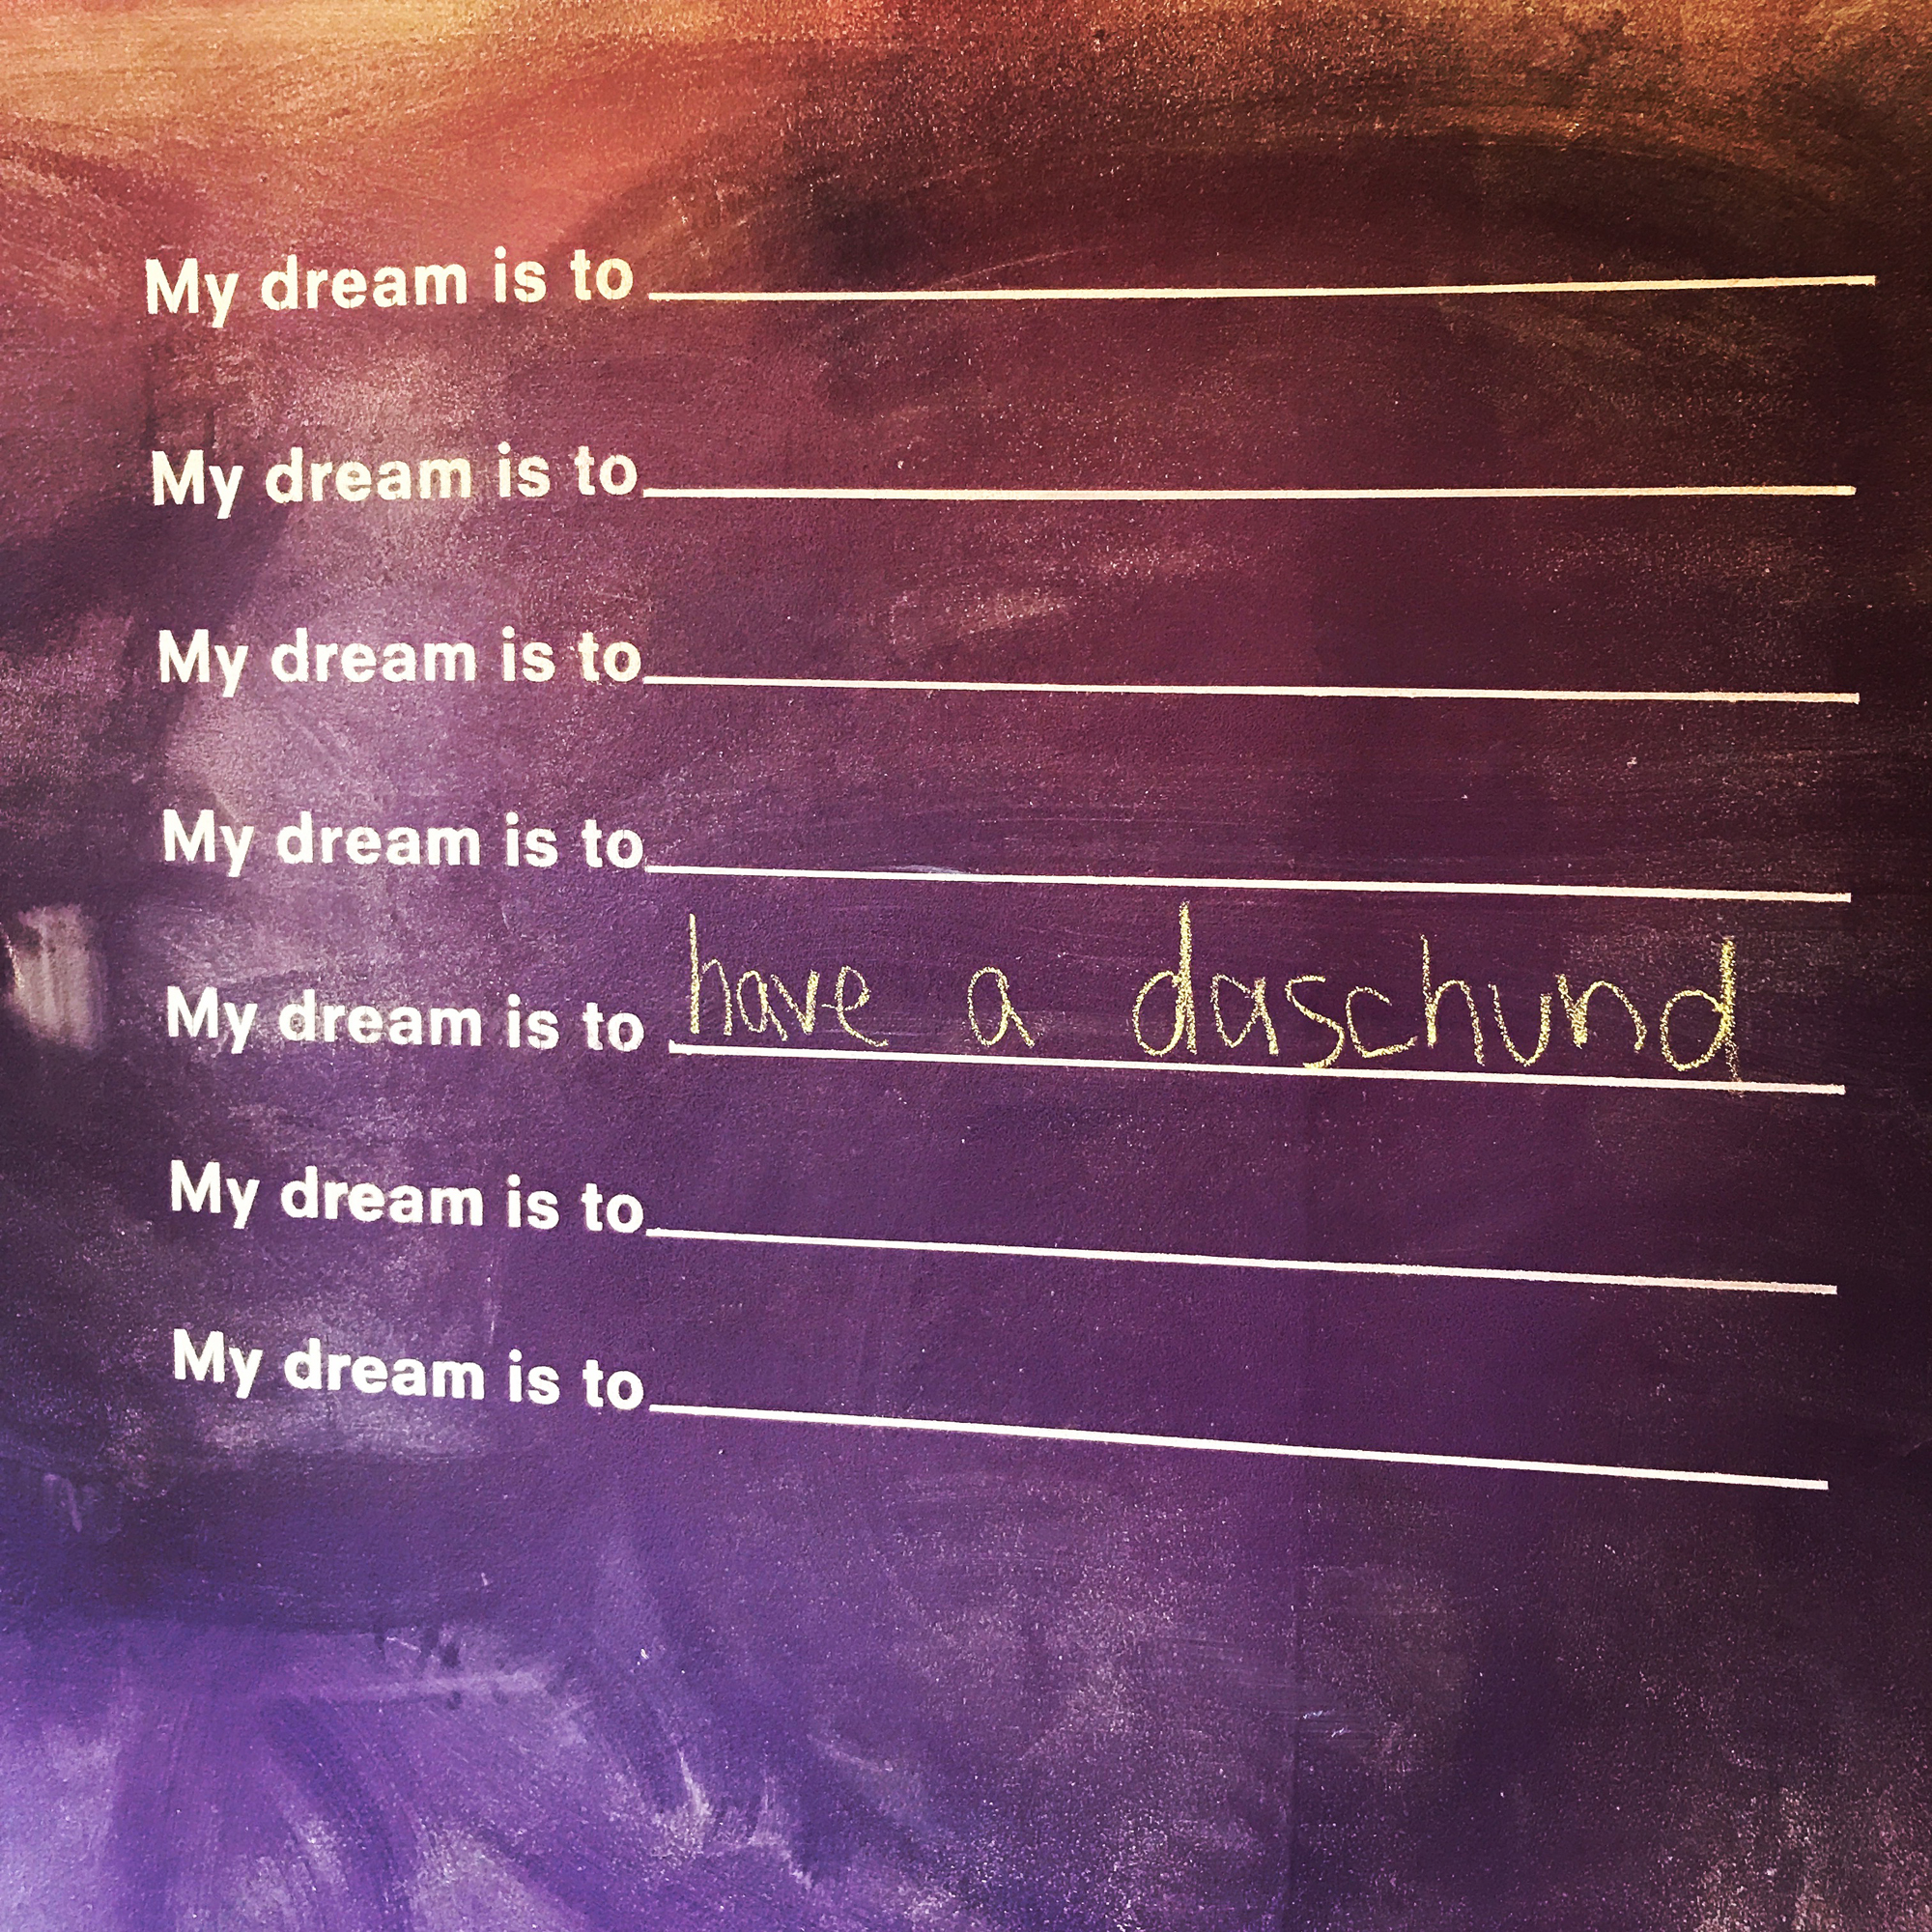 My dream is to
My dream is to
My dream is to
My dream is to
My dream is to have a daschund
My dream is to
My dream is to